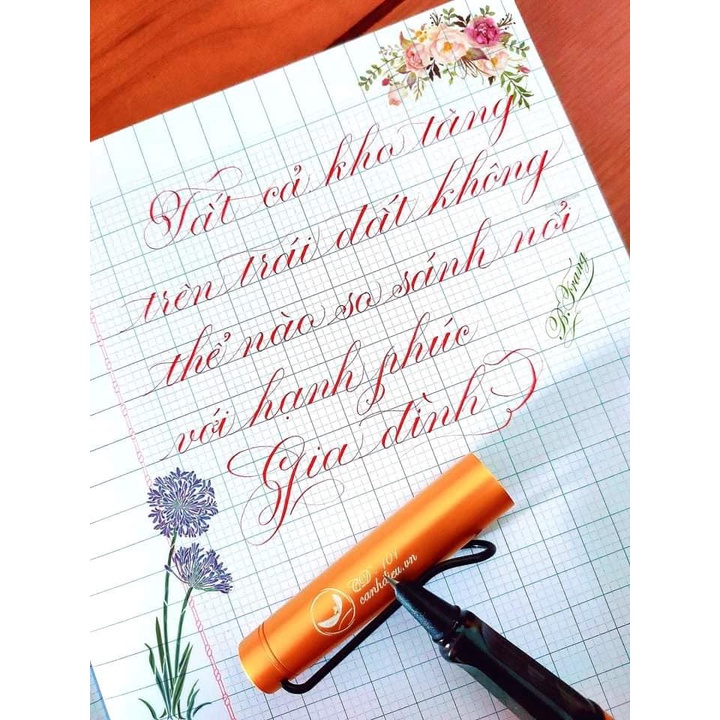 Tất cả kho tàng
trên trái đất không
thể nào so sánh nổi
với hạnh phúc
Gia đình
Đ. Trang
CD - 101
canhdieu.vn